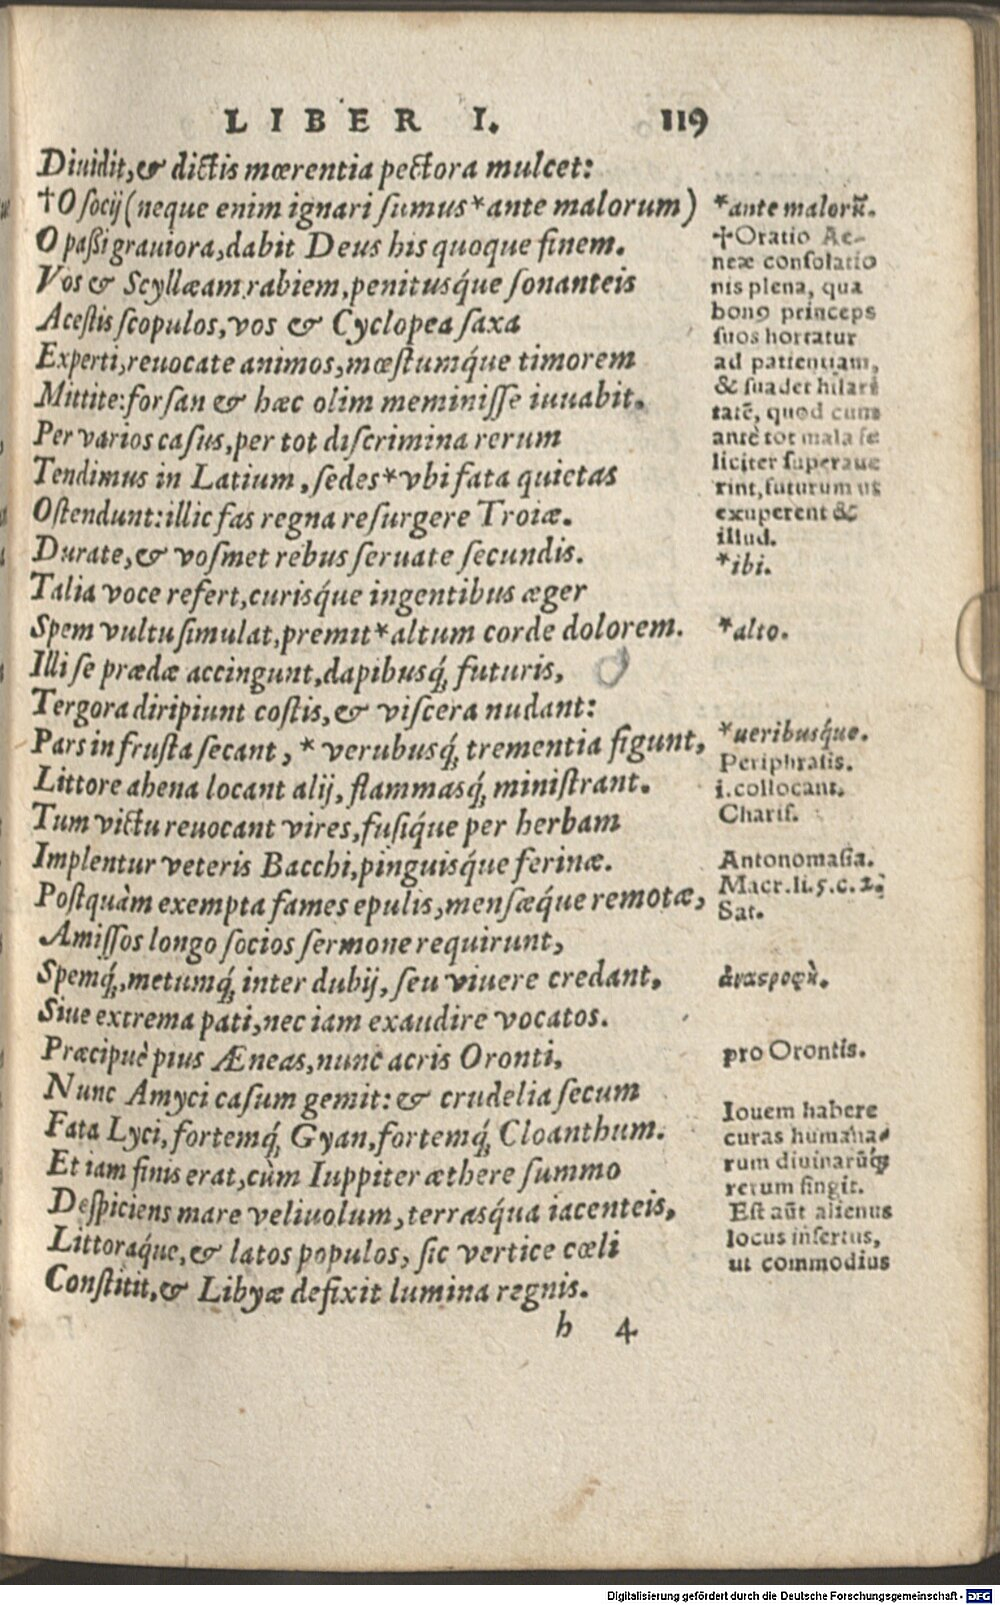 LIBER I. 119
Diuidit,& dictis mœrentia pectora mulcet:
†O socij (neque enim ignari sumus*ante malorum)
O paßi grauiora,dabit Deus his quoque finem.
Vos & Scyllæam rabiem,penitusq́ue sonanteis
Acestis scopulos,vos & Cyclopea saxa
Experti,reuocate animos,mœstumq́ue timorem
Mittite:forsan & hæc olim meminisse iuuabit.
Per varios casus,per tot discrimina rerum
Tendimus in Latium,sedes*vbi fata quietas
Ostendunt:illic fas regna resurgere Troiæ.
Durate,& vosmet rebus seruate secundis.
Talia voce refert,curisq́ue ingentibus æger
Spem vultu simulat,premit*altum corde dolorem.
Illi se prædæ accingunt,dapibusq́; futuris,
Tergora diripiunt costis,& viscera nudant:
Pars in frusta secant,*verubusq́; trementia figunt,
Littore ahena locant alij,flammasq́; ministrant.
Tum victu reuocant vires,fusiq́ue per herbam
Implentur veteris Bacchi,pinguisq́ue ferinæ.
Postquàm exempta fames epulis,mensæq́ue remotæ,
Amissos longo socios sermone requirunt,
Spemq́;,metumq́; inter dubij,seu viuere credant,
Siue extrema pati,nec iam exaudire vocatos.
Præcipuè pius Æneas,nunc acris Oronti,
Nunc Amyci casum gemit:& crudelia secum
Fata Lyci,fortemq́; Gyan,fortemq́; Cloanthum.
Et iam finis erat,cùm Iuppiter æthere summo
Despiciens mare veliuolum,terrasq́ua iacenteis,
Littoraq́ue,& latos populos,sic vertice cœli
Constitit,& Libyæ defixit lumina regnis.
h 4
*ante malorũ.
†Oratio Ae-
neæ consolatio
nis plena, qua
bonꝰ princeps
suos hortatur
ad patientiam,
& suadet hilari
tatẽ, quod cum
antè tot mala fe
liciter superaue
rint,futurum ut
exuperent &
illud.
*ibi.
*alto.
*ueribusq́ue.
Periphrasis.
i.collocant.
Charis.
Antonomasia.
Macr.li.5.c.2.
Sat.
pro Orontis.
Iouem habere
curas humana-
rum diuinarũq́;
rerum fingit.
Est aũt alienus
locus insertus,
ut commodius
Digitalisierung gefördert durch die Deutsche Forschungsgemeinschaft - DFG